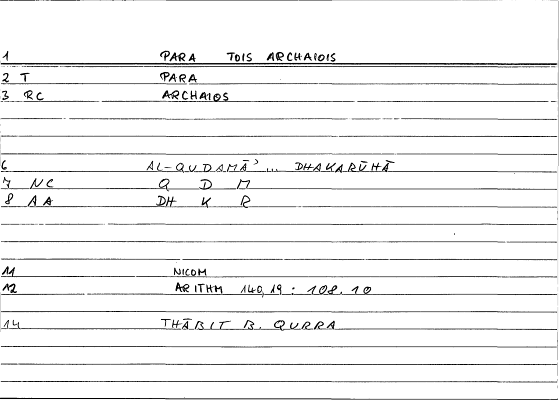 1 PARA TOIS ARCHAIOIS
2 T PARA
3 RC ARCHAIOS
6 AL-QUDAMĀʾ ... DHAKARŪHĀ
7 NC Q D M
8 AA DH K R
11 NICOM
12 ARITHM 140,19 : 108.10
14 THĀBIT B. QURRA